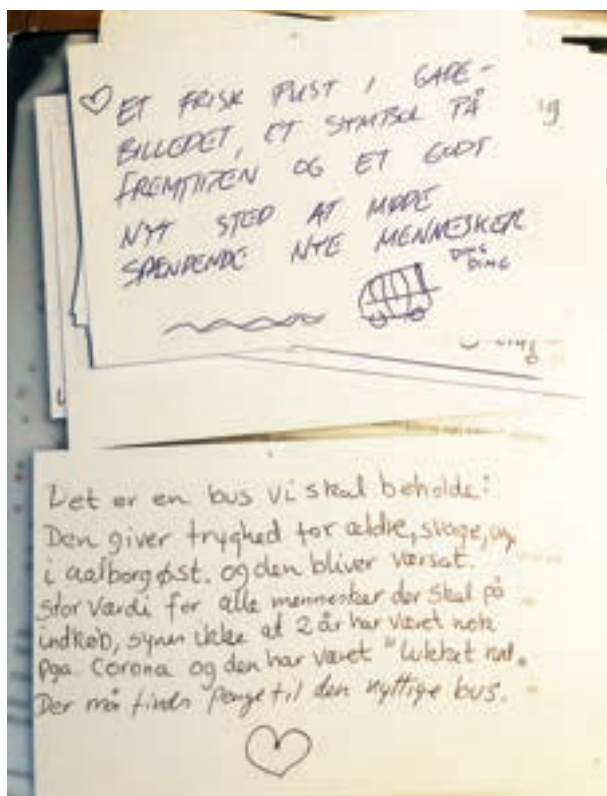 ET FRISK PUST I GADE-
BILLEDET, ET SYMBOL PÅ
FREMTIDEN OG ET GODT
NYT STED AT MØDE
SPÆNDENDE NYE MENNESKER
DING
DING
Det er en bus vi skal beholde!
Den giver tryghed for ældre, svage, unge
i aalborg øst. og den bliver
stor værdi for alle mennesker der skal på
indkøb, synes ikke at 2 år har været nok
pga Corona og den har været "lukket ned.
Der må findes penge til den nyttige bus.